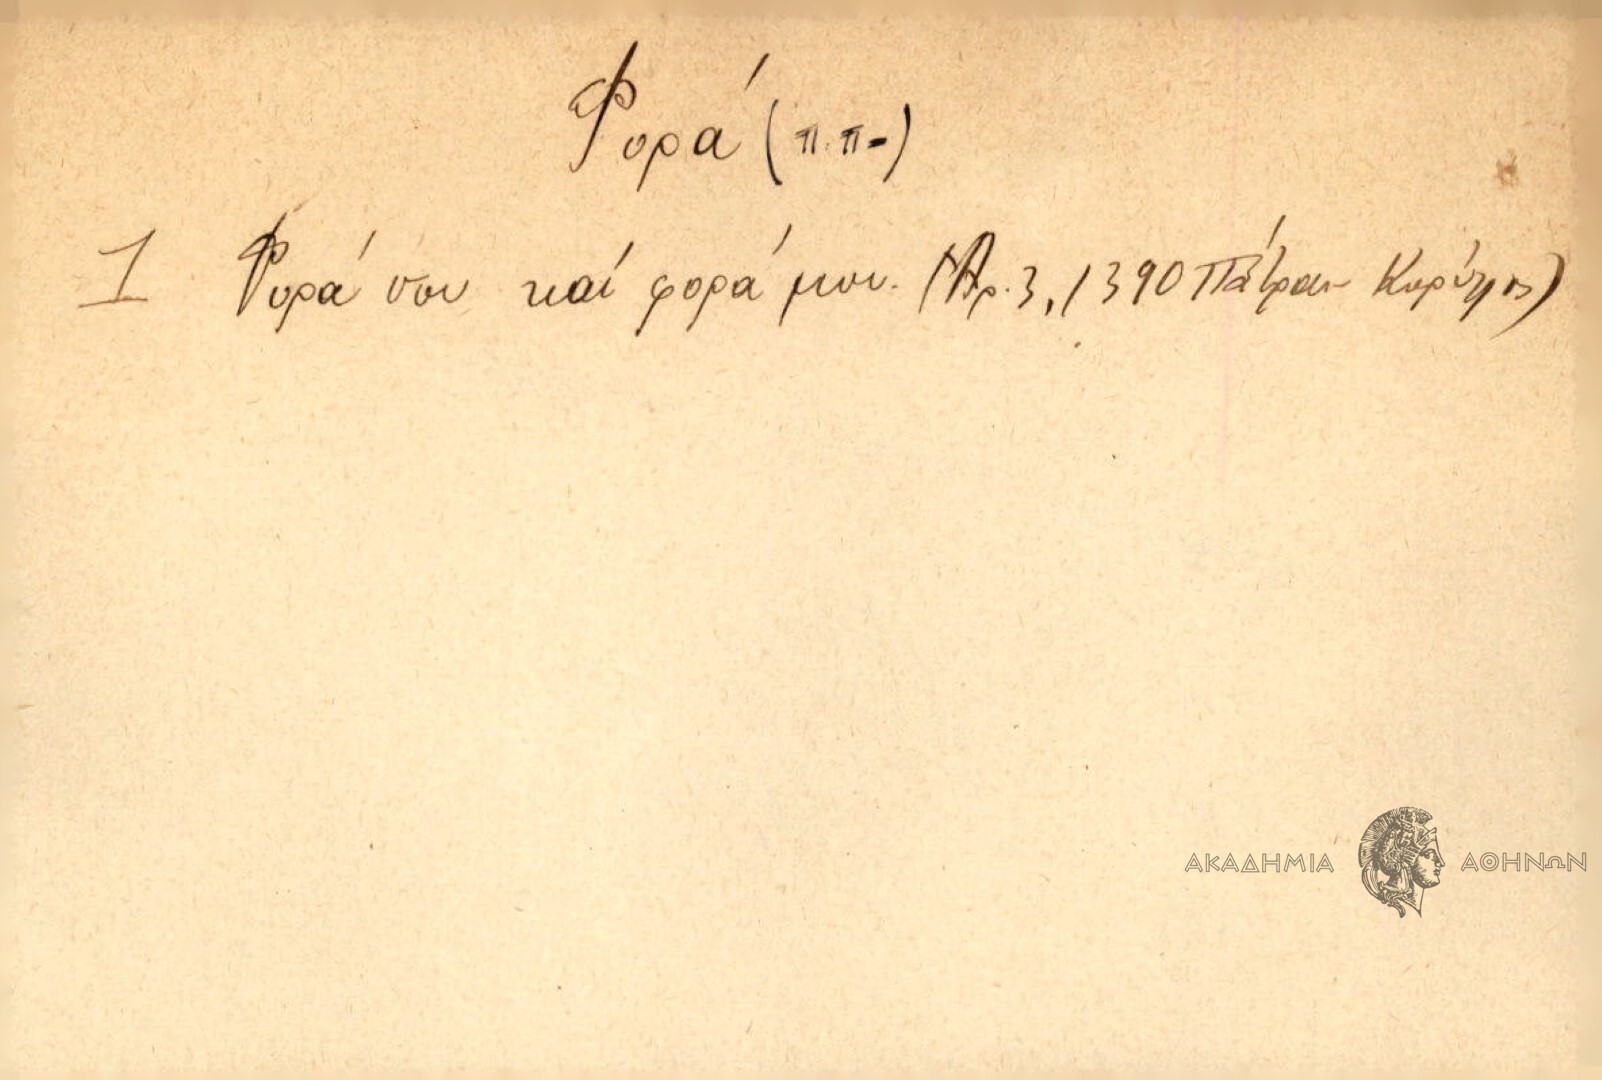 Φορά (π.π-)
1 Φορά σου καί φορά μου. (Ἀρ. 3, 1390 Πάτραι
ΑΚΑΔΗΜΙΑ ΑΘΗΝΩΝ